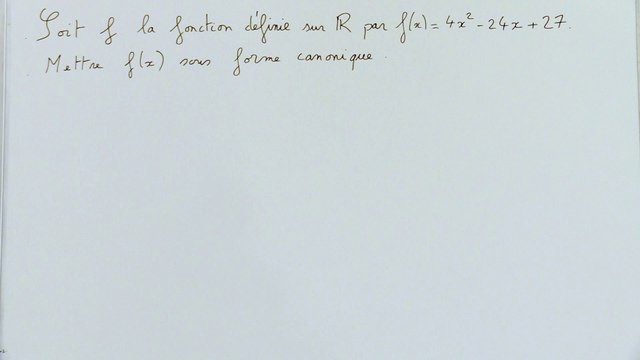 Soit f la fonction définie sur ℝ par f(x) = 4x² - 24x + 27.
Mettre f(x) sous forme canonique.